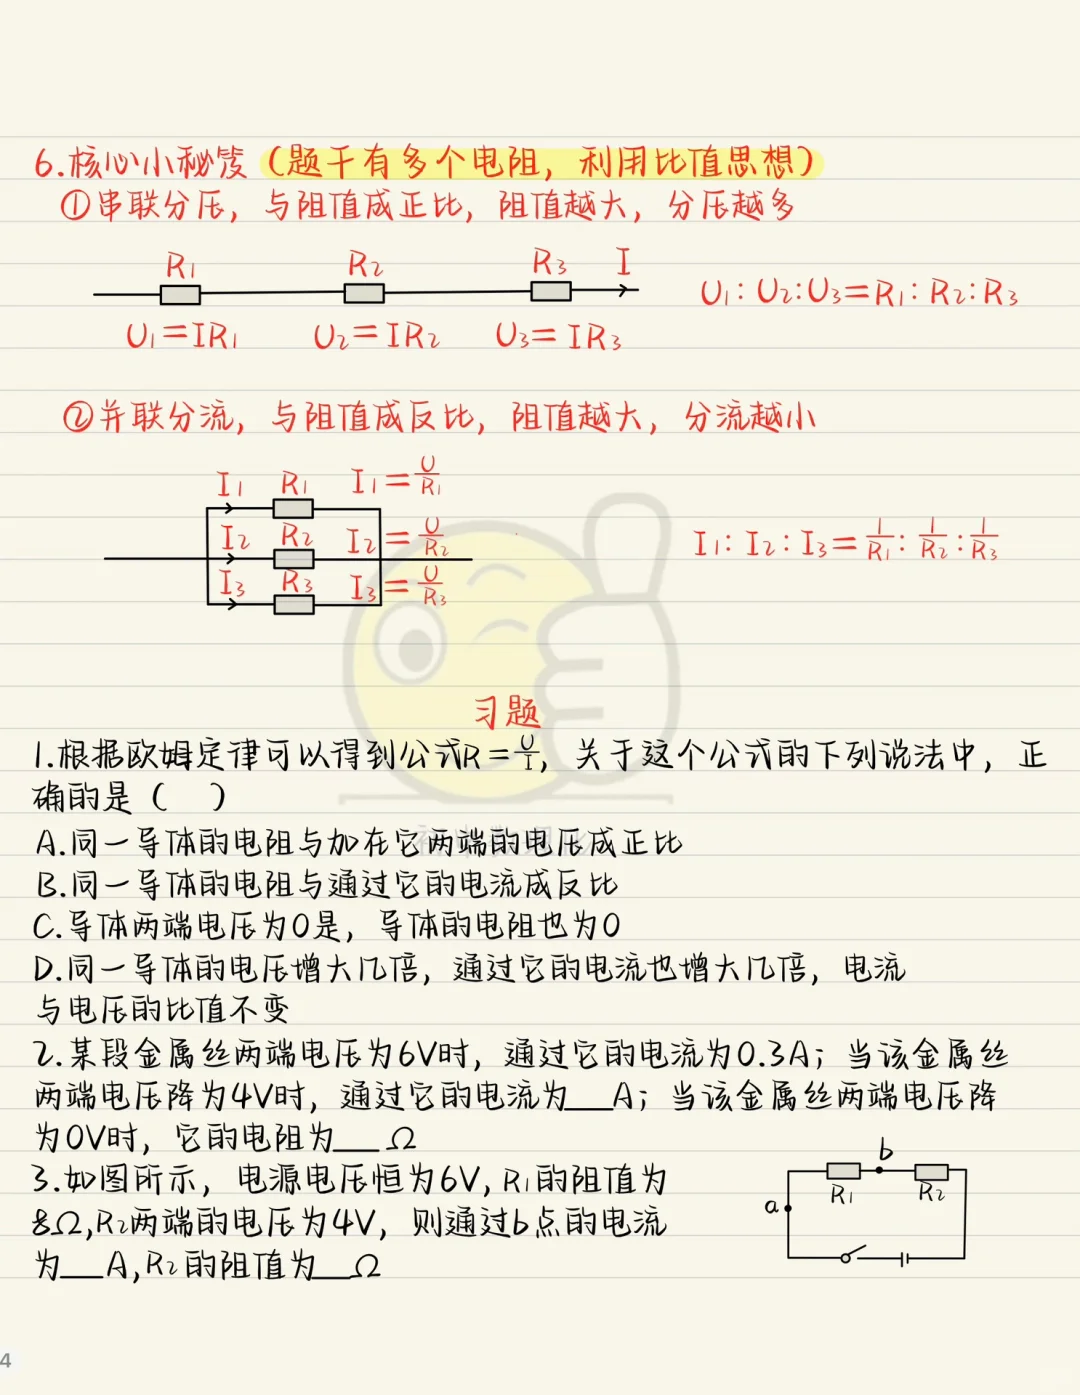 6.核心小秘笈(题干有多个电阻,利用比值思想)
①串联分压,与阻值成正比,阻值越大,分压越多
R₁ R₂ R₃ I
U₁:U₂:U₃=R₁:R₂:R₃
U₁=IR₁ U₂=IR₂ U₃=IR₃
②并联分流,与阻值成反比,阻值越大,分流越小
I₁ R₁ I₁=U/R₁
I₂ R₂ I₂=U/R₂
I₁:I₂:I₃=1/R₁:1/R₂:1/R₃
I₃ R₃ I₃=U/R₃
习题
1.根据欧姆定律可以得到公式R=U/I,关于这个公式的下列说法中,正
确的是( )
A.同一导体的电阻与加在它两端的电压成正比
B.同一导体的电阻与通过它的电流成反比
C.导体两端电压为0是,导体的电阻也为0
D.同一导体的电压增大几倍,通过它的电流也增大几倍,电流
与电压的比值不变
2.某段金属丝两端电压为6V时,通过它的电流为0.3A;当该金属丝
两端电压降为4V时,通过它的电流为__A;当该金属丝两端电压降
为0V时,它的电阻为__Ω
3.如图所示,电源电压恒为6V,R₁的阻值为
8Ω,R₂两端的电压为4V,则通过b点的电流
为__A,R₂的阻值为__Ω
b
R₁ R₂
a
4